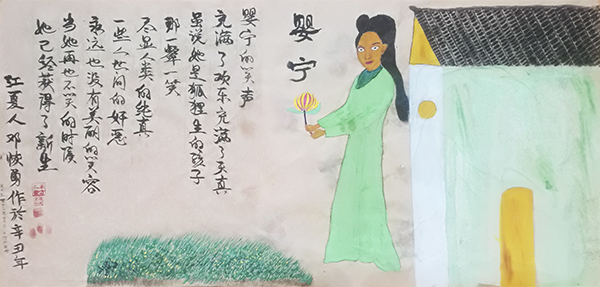 婴宁
婴宁的笑声
充满了欢乐充满了天真
虽说她是狐狸生的孩子
那一颦一笑
尽显人类的纯真
一些人世间的奸恶
永远也没有美丽的笑容
当她再也不笑的时候
她已经获得了新生
江夏人邓勇作於辛丑年